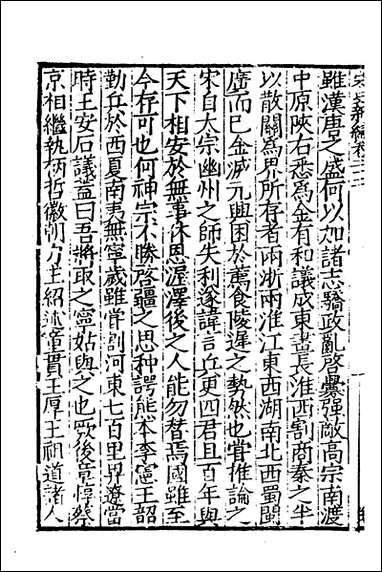 宋史新編卷二二
雖漢唐之盛何以加諸志驕政亂啓釁强敵高宗南渡
中原陝右悉爲金有和議成東畫長淮西割商秦之半
以散關爲界所存者兩浙兩淮江東西湖南北西蜀閩
廣而已金滅元興困於蠶食陵遲之勢然也嘗推論之
宋自太宗幽州之師失利遂諱言兵更四君且百年與
天下相安於無事休恩渥澤後之人能勿替焉國雖至
今存可也何神宗不勝啓疆之思种諤熊本李憲王韶
勤兵於西夏南夷無寧歲雖嘗割河東七百里畀遼當
時王安石議蓋曰吾將取之寧姑與之也歟後章惇蔡
京相繼執柄哲徽朝力主紹述童貫王厚王祖道諸人